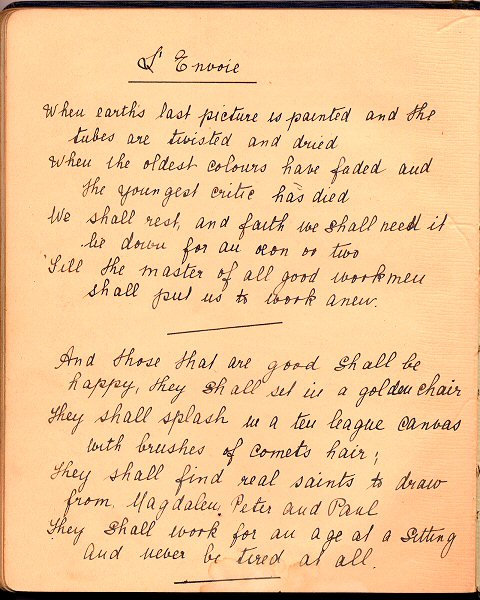 L'Envoie
When earths last picture is painted and the
tubes are twisted and dried
When the oldest colours have faded and
the youngest critic has died
We shall rest, and faith we shall need it
be down for an æon or two
Till the master of all good workmen
shall put us to work anew.
And those that are good shall be
happy, they shall set in a golden chair
They shall splash in a ten league canvas
with brushes of comets hair;
They shall find real saints to draw
from, Magdalen, Peter and Paul
They shall work for an age at a sitting
and never be tired at all.